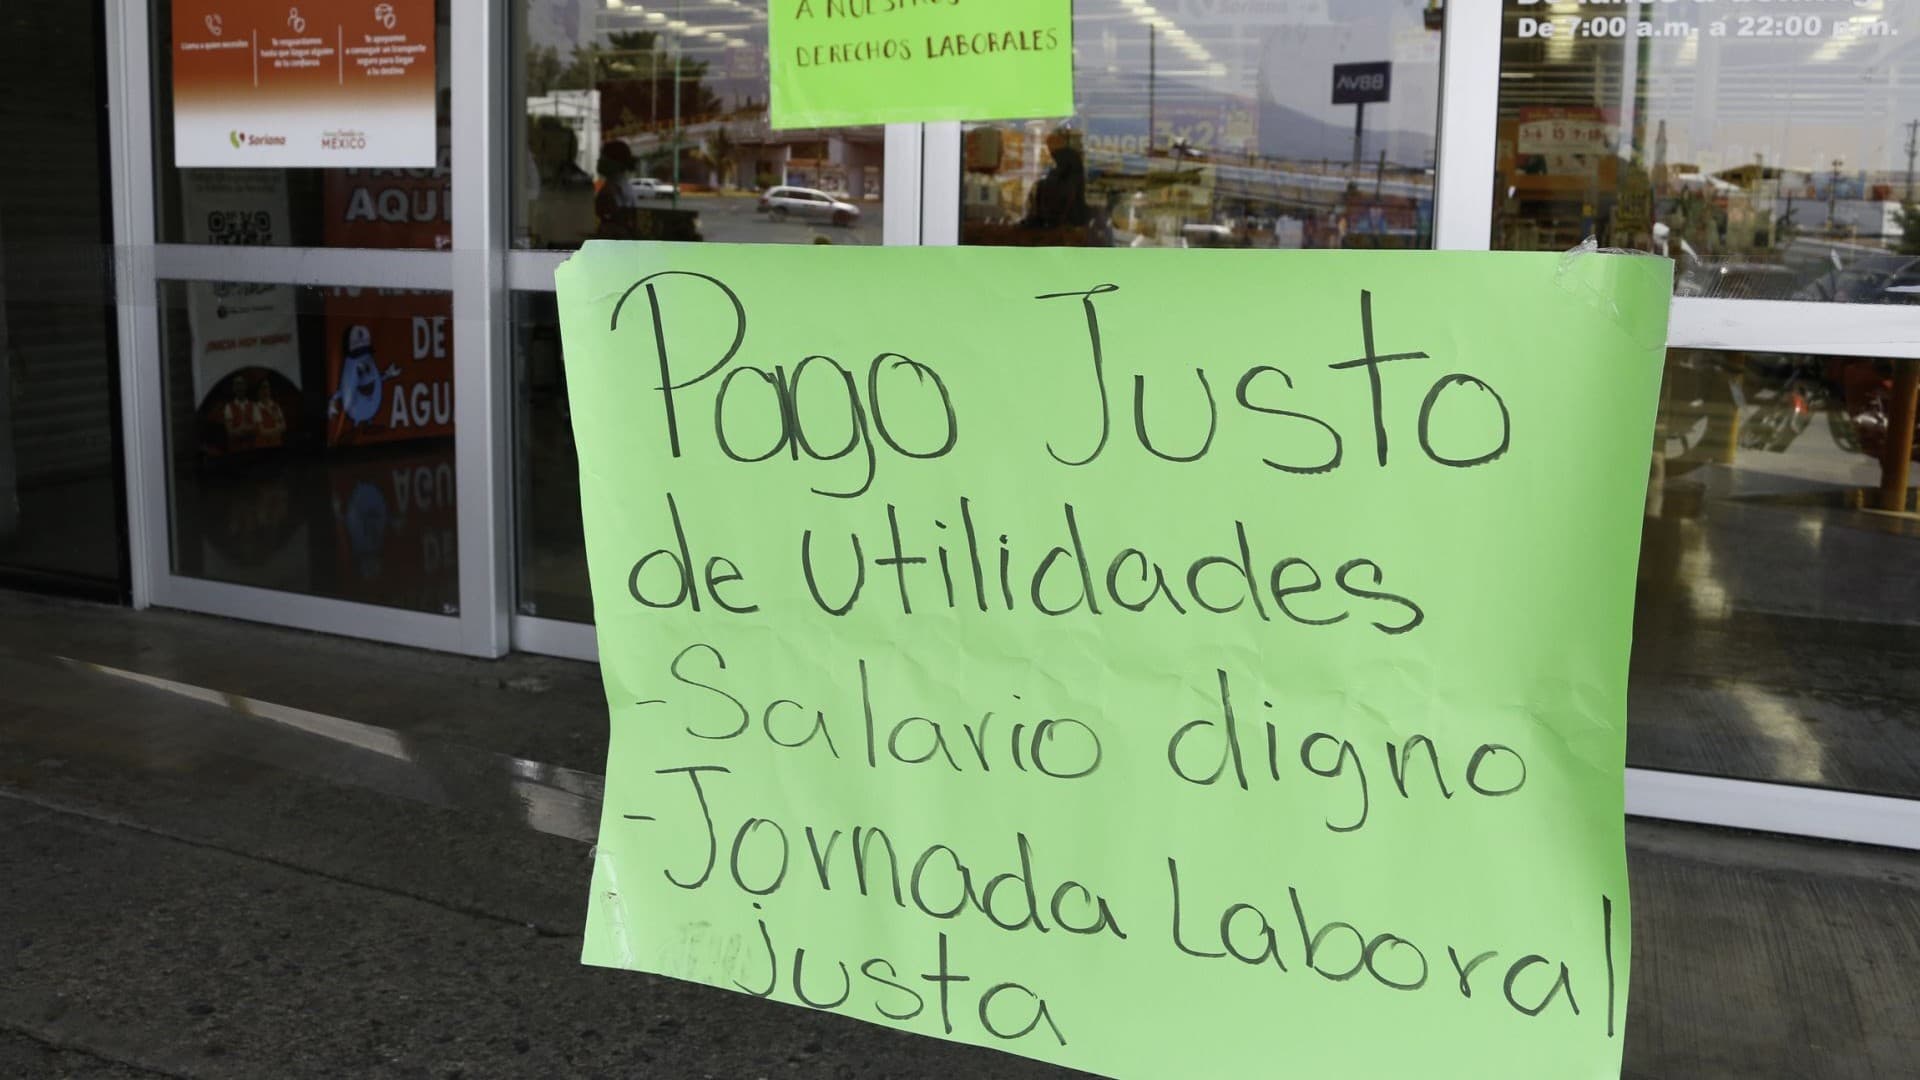 A NUESTROS
DERECHOS LABORALES
De 7:00 a.m. a 22:00 p.m.
Llama a quien necesites
Te resguardamos
hasta que llegue alguien
de tu confianza
Te apoyamos
a conseguir un transporte
seguro para llegar
a tu destino
Soriana
MÉXICO
AQUÍ
DE
AGU
3x2
Pago Justo
de utilidades
-Salario digno
-Jornada Laboral
justa